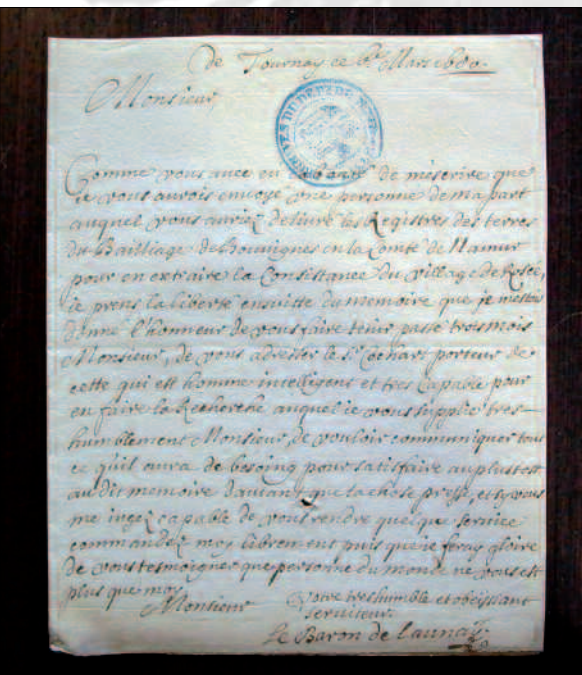 de Tournay ce 6e Mars 1680.
Monsieur,
Comme vous avee eu la bonté de mescrire que
je vous aurois envoyé une personne de ma part
auquel vous auriez delivré les Registres des terres
du Bailliage de Bouvignes en la Comté de Namur
pour en extraire la Consistance du village de Rosée,
ie prens la liberté ensuitte du memoire que je mestois
donne l'honneur de vous faire tenir passé trois mois
Monsieur, de vous adresser le Sr Cochart porteur de
cette qui est homme intelligens et tres Capable pour
en faire la Recherche auquel ie vous supplie tres
humblement Monsieur, de vouloir communiquer tout
ce qu'il aura de besoing pour satisfaire au plustost
au dit memoire dautant que la chose presse, et sy vous
me iugez capable de vous rendre quelque service
commandez moy librement puis que ie feray gloire
de vous tesmoigner que personne du monde ne vous est
plus que moy
Monsieur
Votre tres humble et obeissant
serviteur
Le Baron de Launay